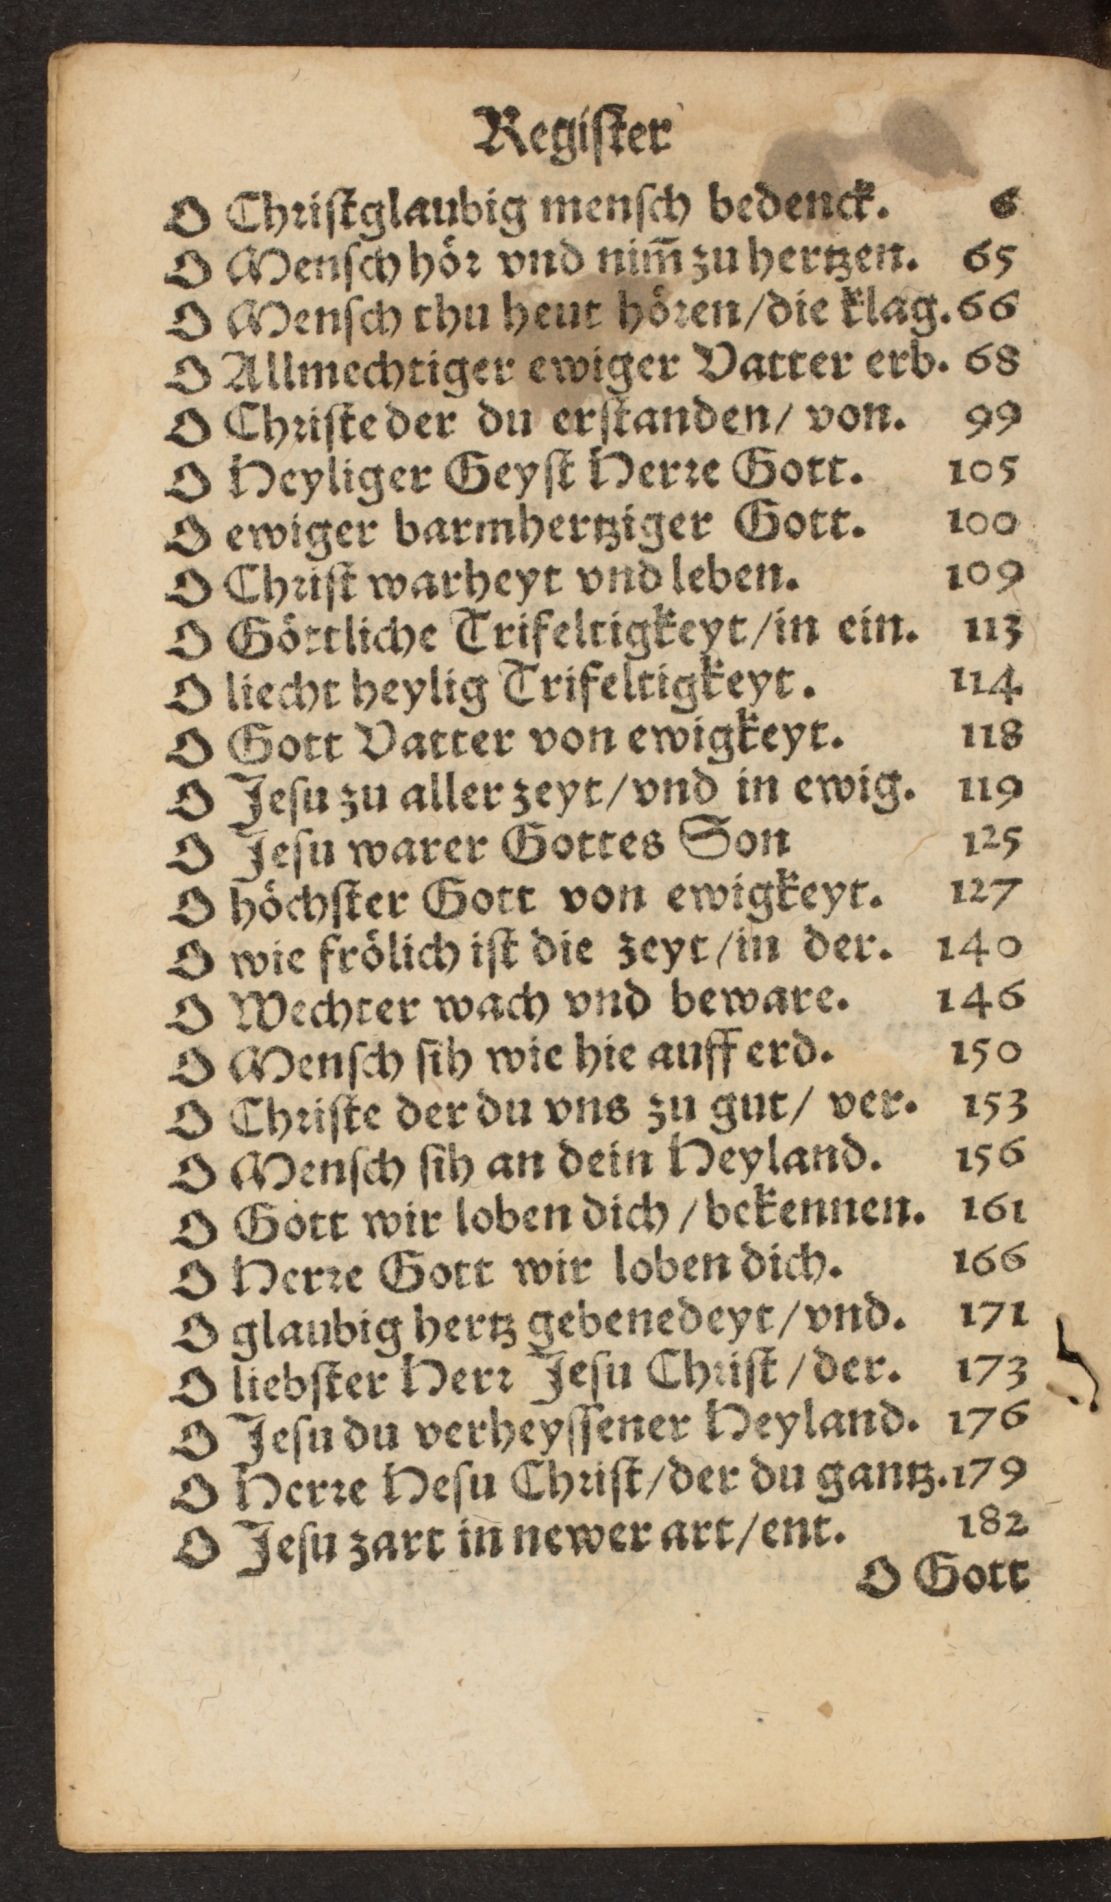 Regiſter
O Chriſtglaubig menſch bedenck. 6
O Menſch hör vnd nim̃ zu hertzen. 65
O Menſch thu heut hören/die klag. 66
O Allmechtiger ewiger Vatter erb. 68
O Chriſte der du erſtanden/ von. 99
O Heyliger Geyſt Herre Gott. 105
O ewiger barmhertziger Gott. 100
O Chriſt warheyt vnd leben. 109
O Göttliche Trifeltigkeyt/in ein. 113
O liecht heylig Trifeltigkeyt. 114
O Gott Vatter von ewigkeyt. 118
O Jeſu zu aller zeyt/vnd in ewig. 119
O Jeſu warer Gottes Son 125
O höchſter Gott von ewigkeyt. 127
O wie frölich iſt die zeyt/in der. 140
O Wechter wach vnd beware. 146
O Menſch ſih wie hie auff erd. 150
O Chriſte der du vns zu gut/ ver. 153
O Menſch ſih an dein Heyland. 156
O Gott wir loben dich/bekennen. 161
O Herre Gott wir loben dich. 166
O glaubig hertz gebenedeyt/vnd. 171
O liebſter Herr Jeſu Chriſt/der. 173
O Jeſu du verheyſſener Heyland. 176
O Herre Heſu Chriſt/der du gantz. 179
O Jeſu zart in newer art/ent. 182
O Gott